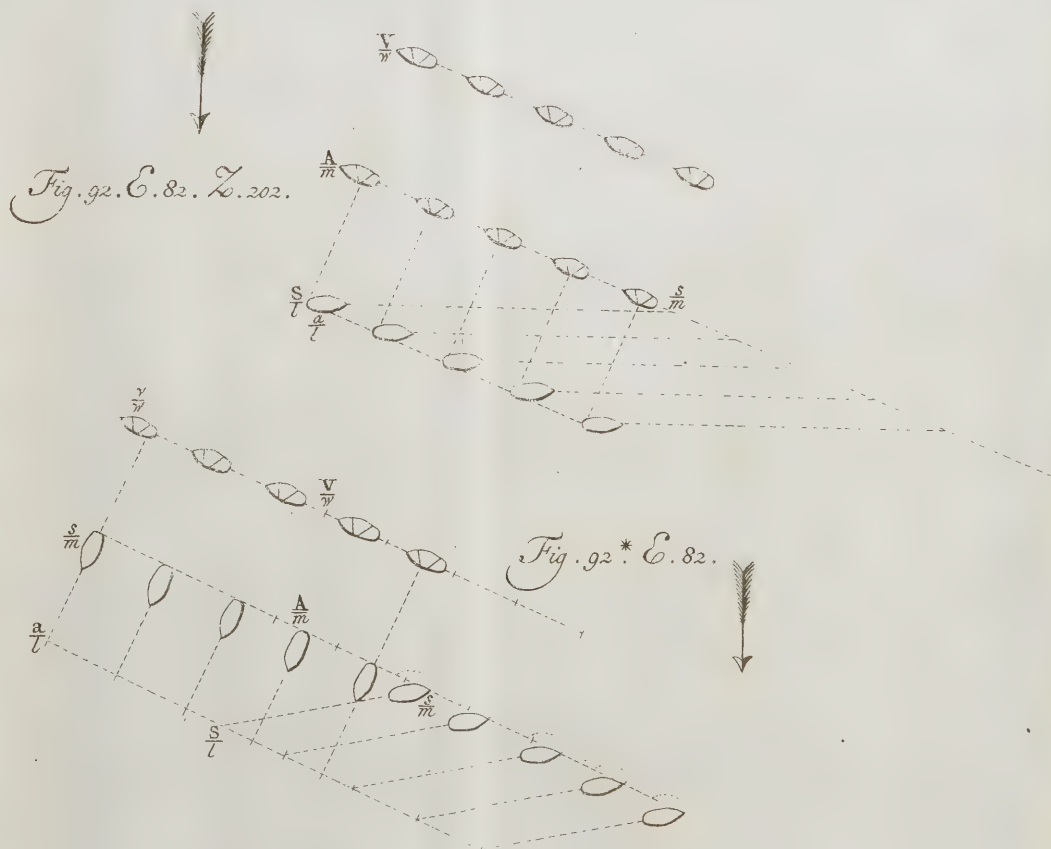 V/w
Fig. 92. E. 82. Z. 202.
A/m
S/l
a/l
s/m
v/w
V/w
s/m
Fig. 92.* E. 82.
A/m
a/l
s/m
S/l